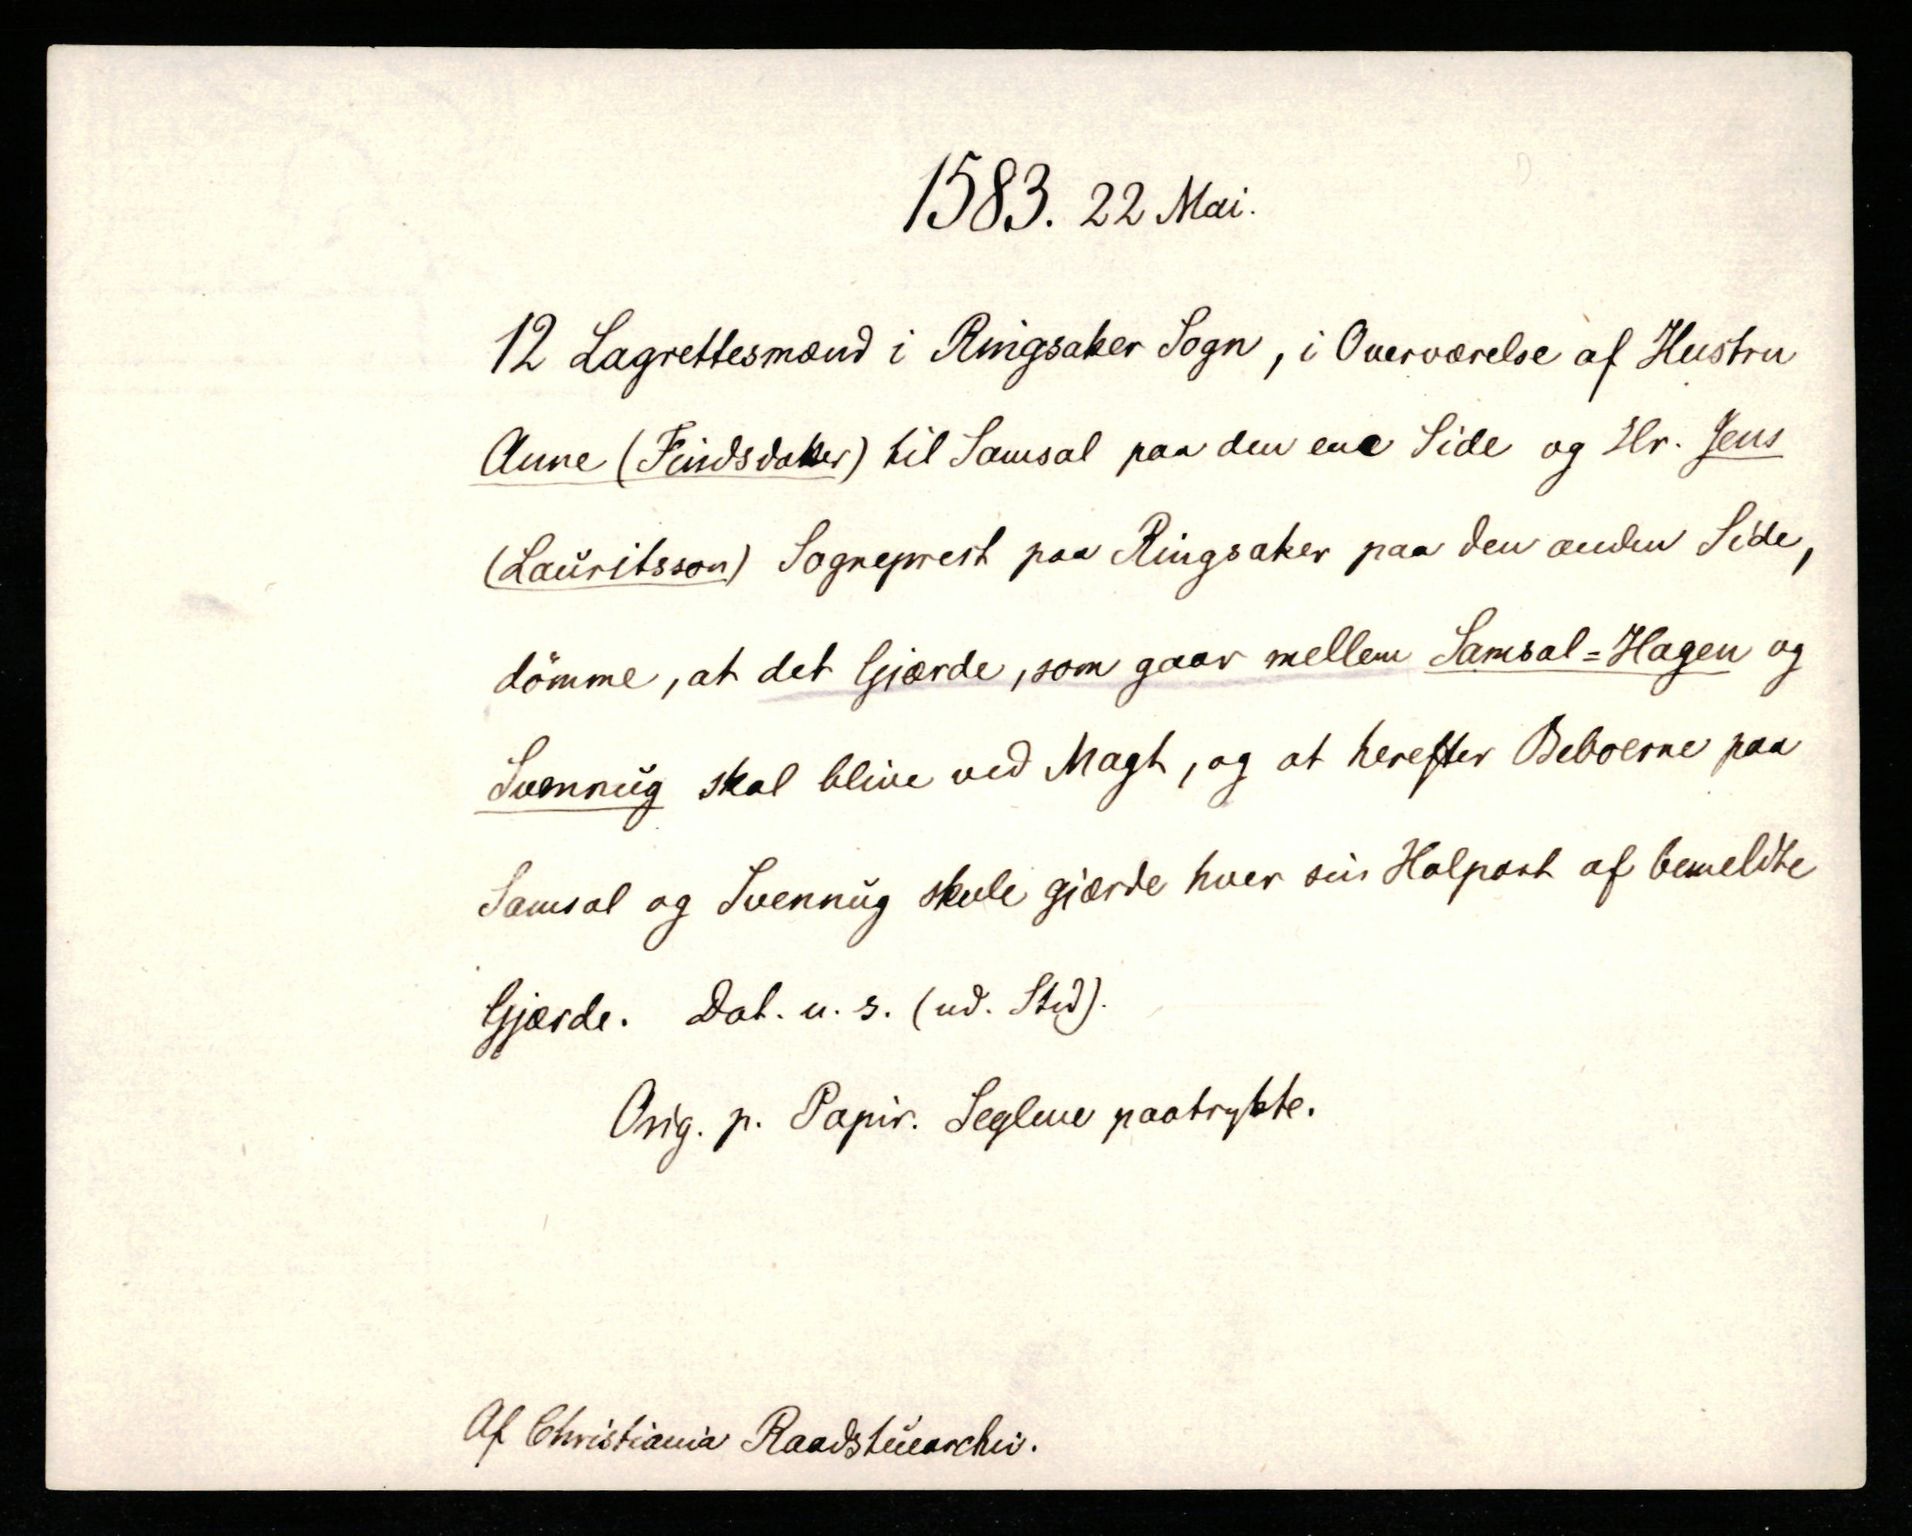 1583. 22 Mai.
12 Lagrettesmænd i Ringsaker Sogn, i Overværelse af Hustru
Anne (Findsdatter) til Samsal paa den ene Side og Hr. Jens
(Lauritsson) Sogneprest paa Ringsaker paa den anden Side,
dömme, at det Gjærde, som gaar mellem Samsal=Hagen og
Svennug skal blive ved Magt, og at herefter Beboerne paa
Samsal og Svennug skule gjærde hver sin Halpart af bemeldte
Gjærde. Dat. u. s. (ud. Sted).
Orig. p. Papir. Seglene paatrykte.
Af Christiania Raadstuearchiv.